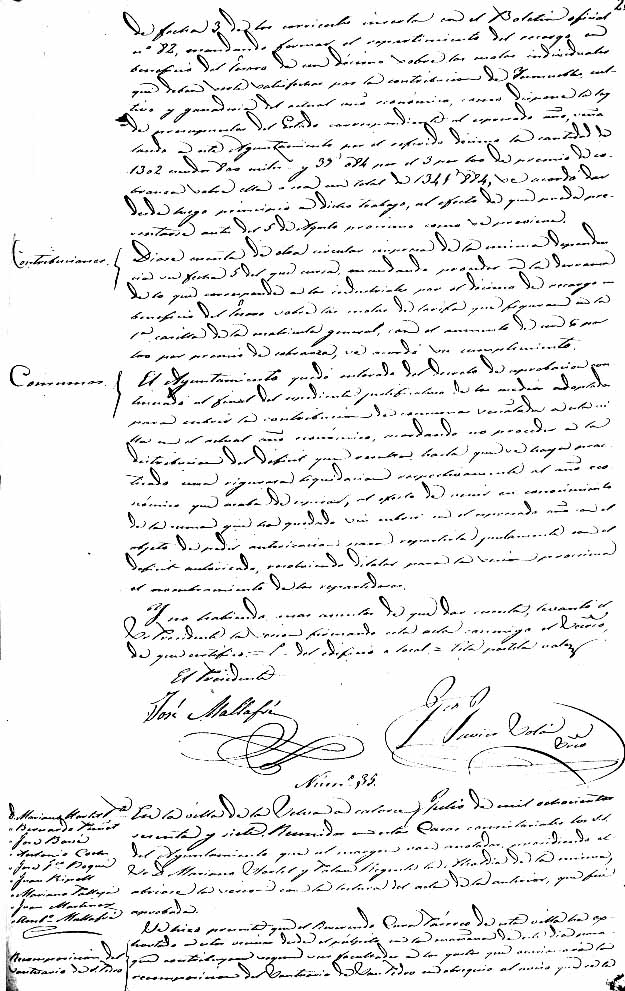 de fecha 3 de los corrientes inserta en el Boletin oficial
nº 82, mandando formar el repartimiento del recargo en
beneficio del Tesoro de un décimo sobre las cuotas individuales
que deban ser satisfechas por la contribucion de Inmuebles, cul-
tivo y ganaderia del actual año económico, como dispone la ley
de presupuestos del Estado correspondiente al espresado año, seña
lando a este Ayuntamiento por el referido décimo la cantidad de
1302 escudos 800 milc. y 39'084 por el 3 por too de premio de co-
branza sobre ella o sea un total de 1341'884, se acordó dar
desde luego principio a dicho trabajo, al efecto de que pueda pre-
sentarse antes del 5 de Agosto procsimo como se previene.
Contribuciones.
Diose cuenta de otra circular impresa de la misma dependen
cia su fecha 5 del que cursa, mandando proceder a la derrama
de lo que corresponde a los industriales por el décimo de recargo en
beneficio del Tesoro sobre las cuotas de tarifa que figuran en la
1ª casilla de la matricula general, con el aumento de un 6 por
too por premio de cobranza, se acordó su cumplimiento.
Consumos.
El Ayuntamiento quedó enterado del Decreto de aprobacion con
tinuado al final del espediente justificativo de los medios adoptados
para cubrir la contribucion de consumos señalada a esta vi
lla en el actual año económico, acordando no proceder a la
distribucion del déficit que resulta hasta que se haya prac
ticado una rigurosa liquidacion respectivamente al año eco
nómico que acaba de espirar, al efecto de venir en conocimiento
de la suma que ha quedado sin cubrir en el espresado año con el
objeto de pedir autorizacion para repartirla juntamente con el
deficit autorizado, reservando dilatar para la sesion procsima
el nombramiento de los repartidores.
Y no habiendo mas asuntos de que dar cuenta, levantó el
Sr. Presidente la sesion firmando esta acta conmigo el Srio,
de que certifico.= del edificio o local = vale
El Presidente
José Mallafré
Srio
Núm.º 35.
D. Mariano Martet
Bernardo
José
Antonio Corte
José
Juan Ripoll
Mariano
Juan Martinez
Ant.º Mallafré
En la villa de la Selva a catorce Julio de mil ochocientos
sesenta y siete Reunidos en estas Casas consistoriales los SS.
del Ayuntamiento que al margen van anotados, presidiendo el
Sr. D. Mariano Martet y Regente la Alcaldia de la misma,
abriose la sesion con la lectura del acta de la anterior, que fué
aprobada.
Recomposicion del
Santuario de S. Pedro
Se hizo presente que el Reverendo Cura Párroco de esta villa ha ex-
hortado a estos vecinos desde el púlpito en la mañana de este dia para
que contribuyan segun sus facultades a los gastos que ocasionará la
recomposicion del Santuario de San Pedro en obsequio al